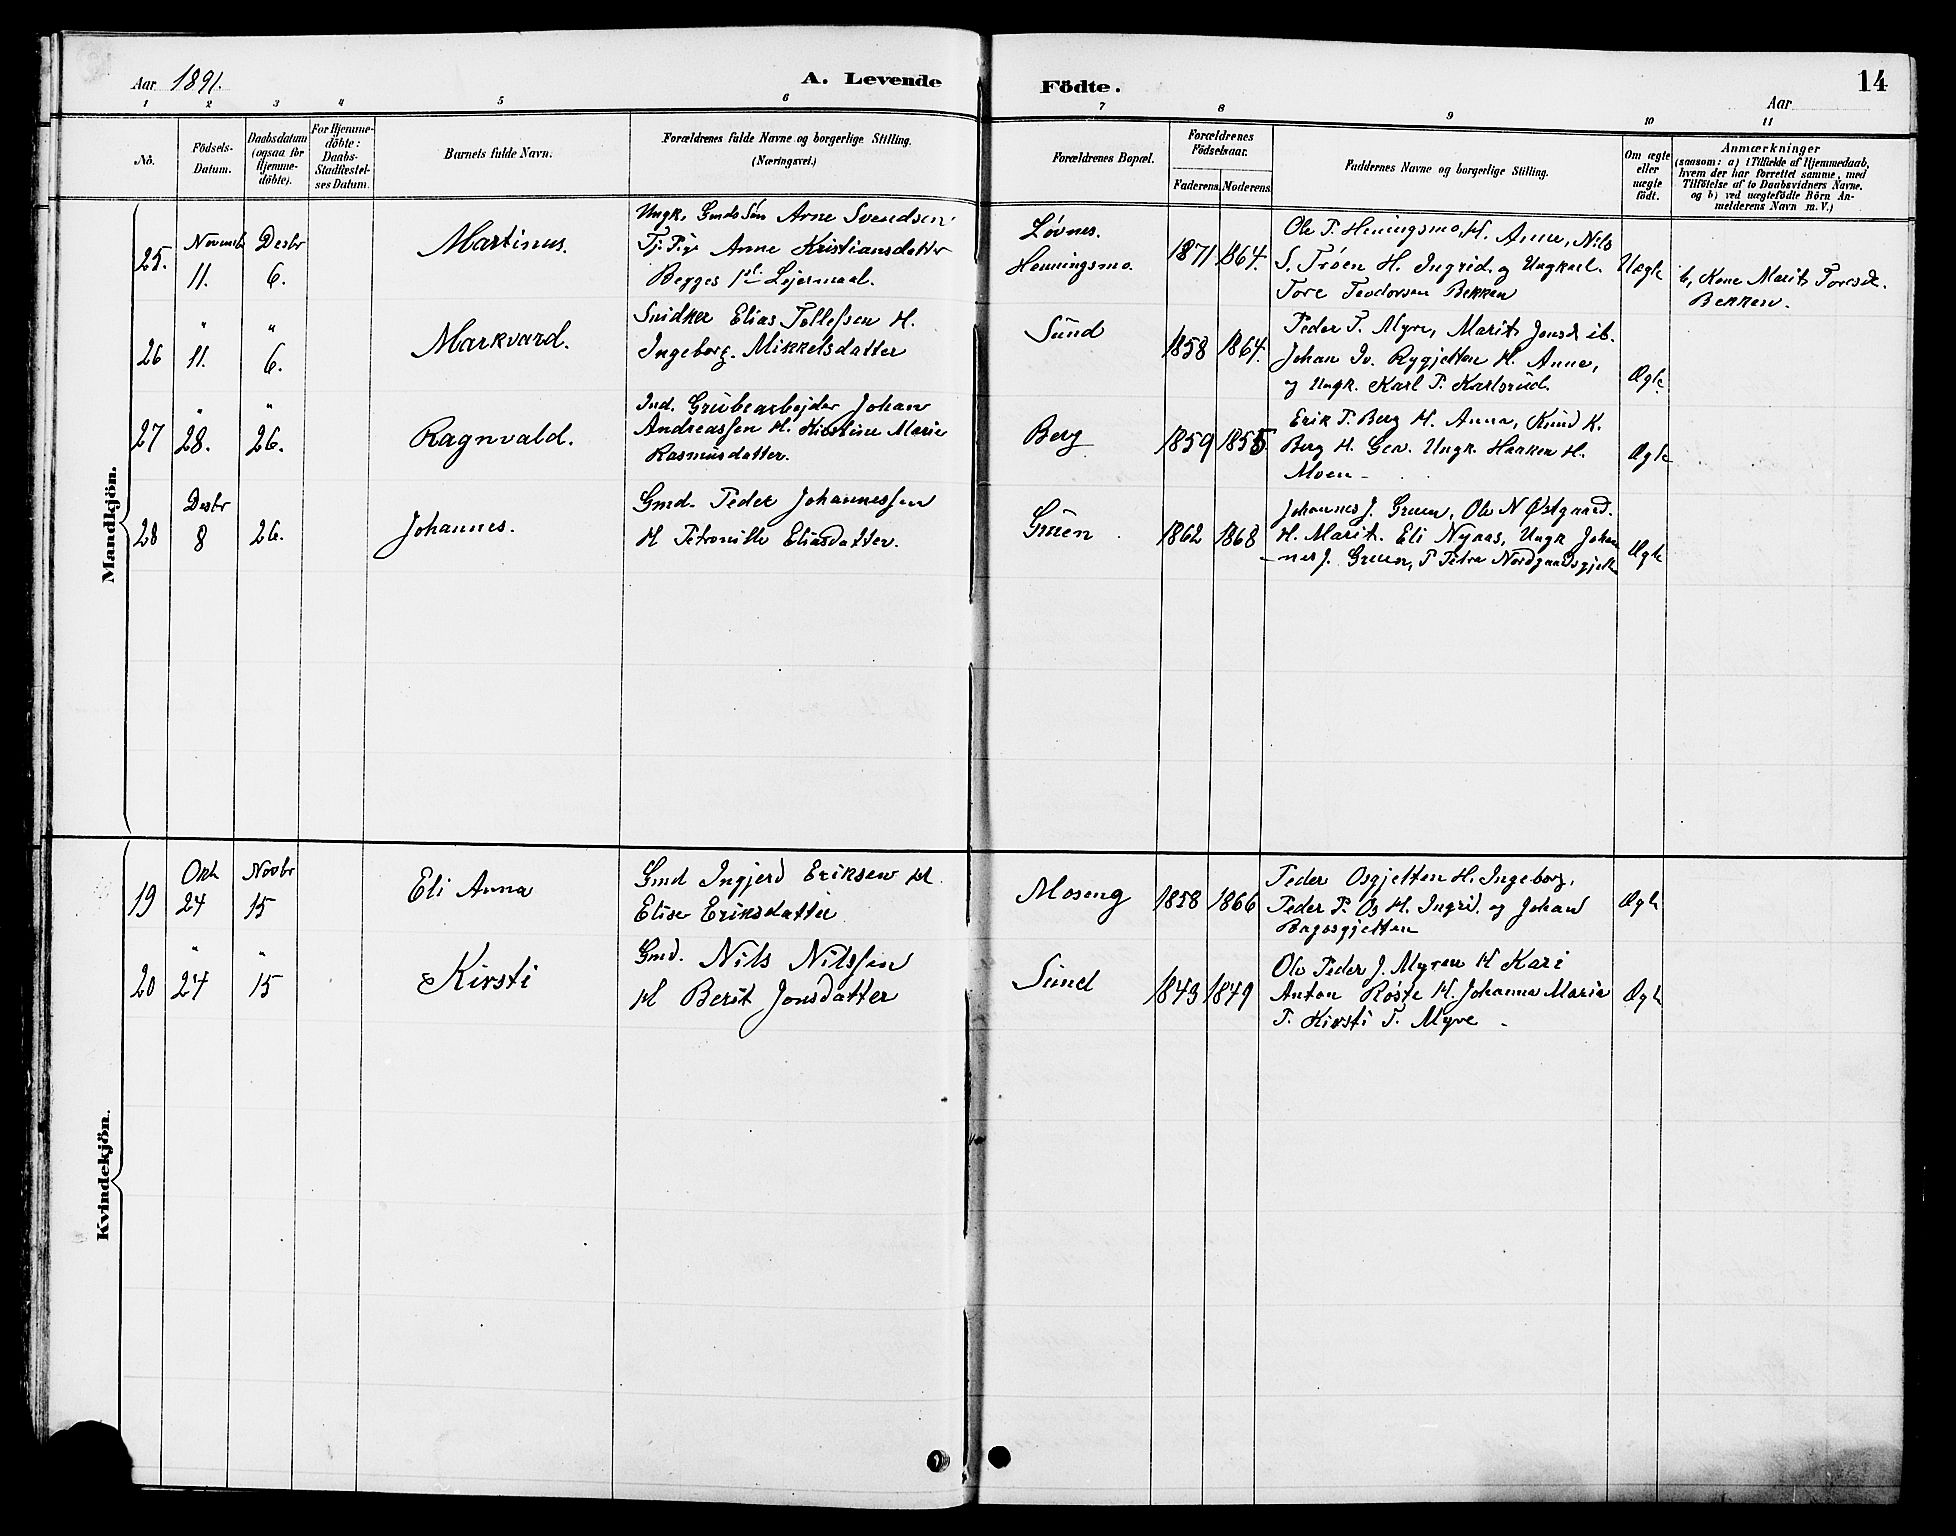 Aar 1891.
A. Levende
Födte.
14
Aar
1 2 3 4 5 6 7 8 9 10 11
No.
Födsels-
Datum.
Daabsdatum
(ogsaa for
Hjemme-
döbte).
For Hjemme-
döbte:
Daabs-
Stadfestel-
ses Datum.
Barnets fulde Navn.
Forældrenes fulde Navne og borgerlige Stilling.
(Næringsvei.)
Forældrenes Bopæl.
Forældrenes
Födselsaar.
Faderens. Moderens.
Faddernes Navne og borgerlige Stilling.
Om ægte
eller
uægte
födt.
Anmærkninger
(saasom: a) i Tilfælde af Hjemmedaab,
hvem der har forrettet samme, med
Tilföielse af to Daabsvidners Navne.
og b) ved uægtefödte Börn An-
melderens Navn m. V.)
Mandkjön.
25.
Novemb
11.
Desbr
6.
Martinus.
Ungk. Gmds Søn Arne Svendsen.
Tj. Pige Anne Kristiansdatter
Begges 1ste Lejermaal.
Løvnes.
Henningsmo.
1871 1864.
Ole P. Heningsmo, H. Anne, Nils
S. Trøen H. Ingrid. og Ungkarl.
Tore Teodorsen Bekken
Uægte
b, Kone Marit Toresd.
Bekken.
26
" 11.
" 6.
Markvard.
Snidker Elias Tollefsen H.
Ingeborg. Mikkelsdatter
Sund
1858 1864.
Peder T. Myre, Marit Jonsd ib.
Johan Iv. Rygjetten H. Anne,
og Ungk. Karl P. Karlsrud.
Ægte
27
" 28.
" 26.
Ragnvald.
Ind. Grubearbejder Johan
Andreassen H. Kirstine Marie
Rasmusdatter.
Berg
1859 1855
Erik P. Berg H. Anna, Knud K.
Berg H. Gea. Ungk. Haaken H.
Moen.
Ægte
28
Desbr
8
26.
Johannes.
Gmd. Peder Johannessen
H Petronille Eliasdatter.
Gruen
1862 1868
Johannes J. Gruen, Ole N Østgaard.
H. Marit. Eli Nyaas, Ungk Johan
-nes J. Gruen, P Petra Nordgaardsgjett
Ægte
Kvindekjön.
19
Okt
24
Novbr
15
Eli Anna
Gmd Ingjerd Eriksen H.
Elise Eriksdatter
Moseng
1858 1866
Peder Osgjetten H. Ingeborg.
Peder P. Os H. Ingrid. og Johan
Bagosgjetten
Ægte
20
" 24
" 15
Kirsti
Gmd. Nils Nilssen
H Berit Jonsdatter
Sund
1843 1849
Ole Peder J. Myren H Kari
Anton Røste H. Johanna Marie
P. Kirsti T. Myre.
Ægte